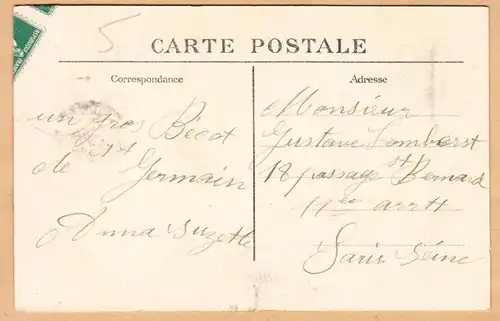 5
CARTE POSTALE
Correspondance
un gros Bécot
de St Germain
Anna Suzette
Adresse
Monsieur
Gustave
18 passage St Bernard
11e arrtt
Paris Seine